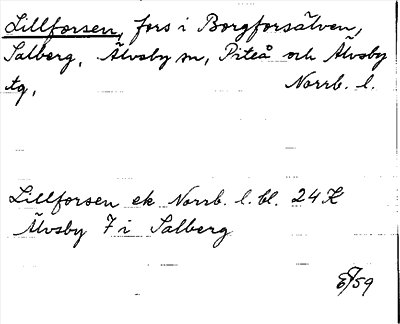 Lillforsen, fors i Borgforsälven,
Salberg, Älvsby sn, Piteå och Älvsby
tg, Norrb. l.
Lillforsen ek Norrb. l. bl. 24 K
Älvsby 7 i Salberg